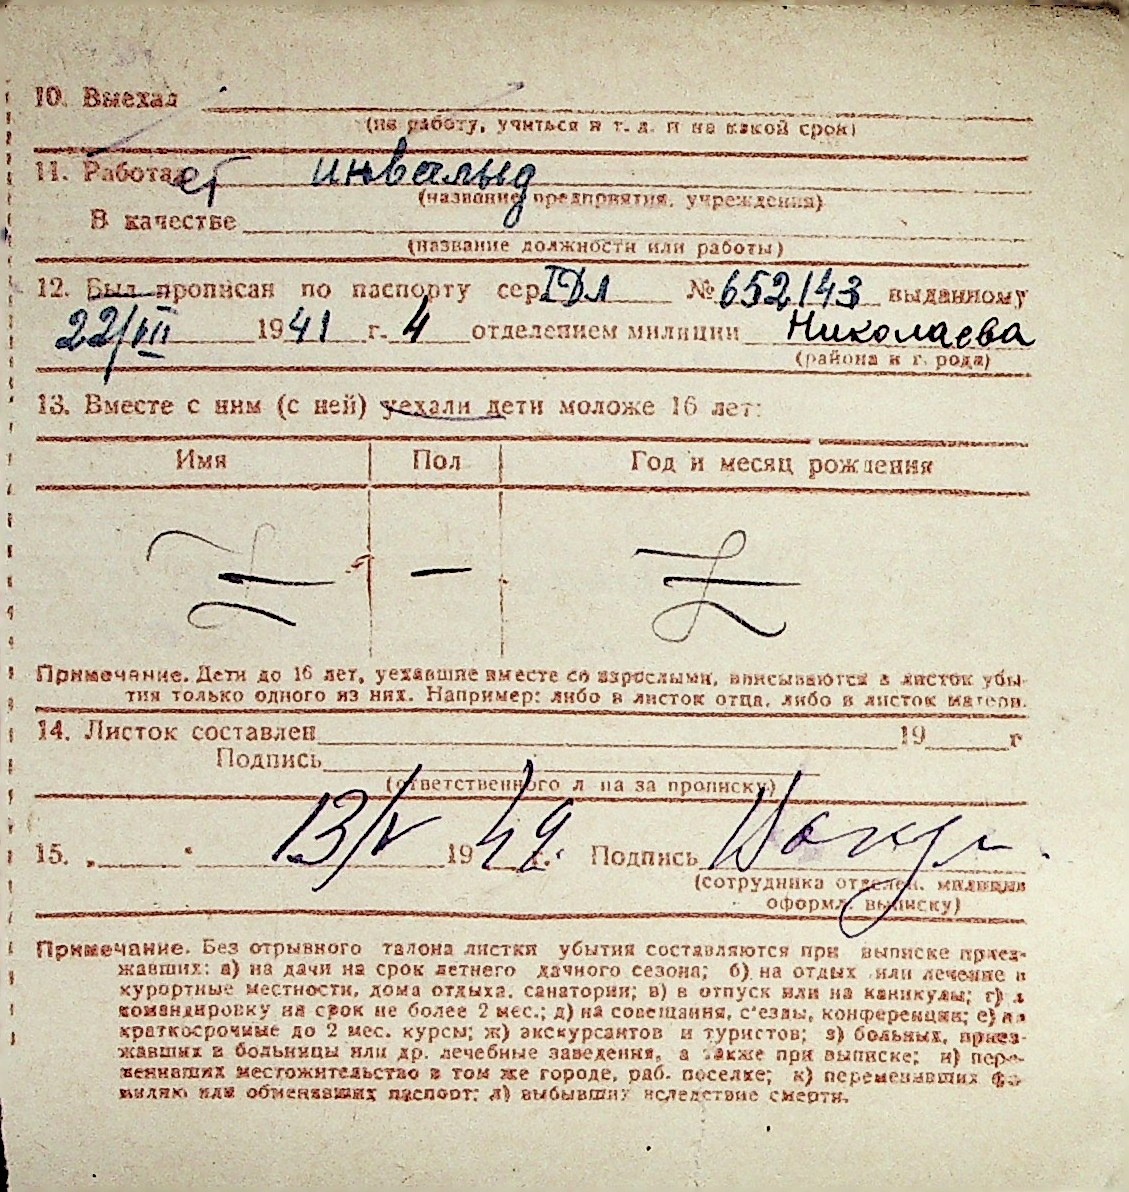 10. Выехал
(на работу, учиться и т. д. и на какой срок)
11. Работает инвалыд
(название предприятия, учреждения)
В качестве
(название должности или работы)
12. Был прописан по паспорту сер. IДл № 652143 выданному
22/VII 1941 г. 4 отделением милиции Николаева
(района и города)
13. Вместе с ним (с ней) уехали дети моложе 16 лет:
Имя Пол Год и месяц рождения
Z — Z
Примечание. Дети до 16 лет, уехавшие вместе со взрослыми, вписываются в листок убы-
тия только одного из них. Например: либо в листок отца, либо в листок матери.
14. Листок составлен 19 г
Подпись
(ответственного лица за прописку)
15. „ “ 13/V 1949 г. Подпись
(сотрудника отделен. милиции
оформл. выписку)
Примечание. Без отрывного талона листки убытия составляются при выписке приез-
жавших: а) на дачи на срок летнего дачного сезона; б) на отдых или лечение в
курортные местности, дома отдыха, санатории; в) в отпуск или на каникулы; г) в
командировку на срок не более 2 мес.; д) на совещания, с'езды, конференции; е) на
краткосрочные до 2 мес. курсы; ж) экскурсантов и туристов; з) больных, приез-
жавших в больницы или др. лечебные заведения, а также при выписке; и) пере-
менивших местожительство в том же городе, раб. поселке; к) переменивших фа-
милию или обменявших паспорт; л) выбывших вследствие смерти.